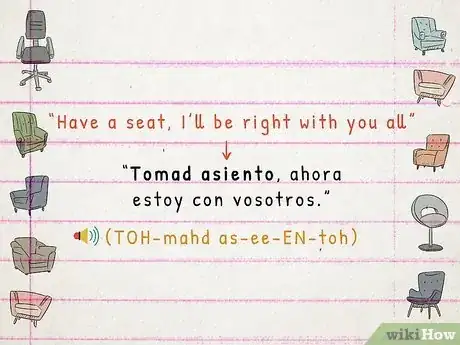 "Have a seat, I'll be right with you all"
"Tomad asiento, ahora
estoy con vosotros."
(TOH-mahd as-ee-EN-toh)
wikiHow